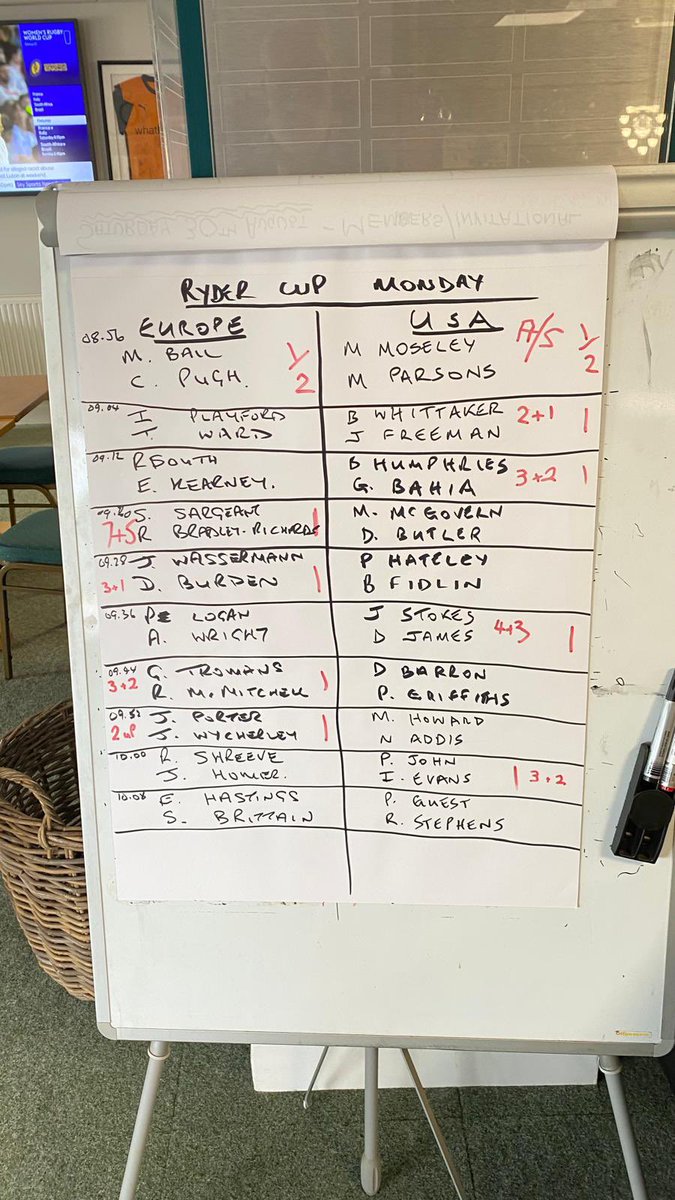 WOMEN'S RUGBY
WORLD CUP
France
Italy
South Africa
Brazil
what!
SATURDAY 30TH AUGUST - MEMBERS/INVITATIONAL
RYDER CUP MONDAY
EUROPE USA
08.56 M. BALL 1/2 M MOSELEY A/S 1/2
C. PUGH. M PARSONS
09.04 I PLAYFORD B WHITTAKER 2+1 1
T. WARD J FREEMAN
09.12 R SOUTH B HUMPHRIES 3+2 1
E. KEARNEY. G. BAHIA
09.20 S. SARGEANT 1 M. McGOVERN
7+5 R BRADLEY-RICHARDS D. BUTLER
09.28 J. WASSERMANN 1 P HATELEY
3+1 D. BURDEN B FIDLIN
09.36 P LOGAN J STOKES 4+3 1
A. WRIGHT D JAMES
09.44 G. TROMANS 1 D BARRON
3+2 R. McMITCHELL P. GRIFFITHS
09.52 J. PORTER 1 M. HOWARD
2UP J. WYCHERLEY N ADDIS
10.00 R. SHREEVE P. JOHN 1 3+2
J. HOMER. I. EVANS
10.08 E. HASTINGS P. GUEST
S. BRITTAIN R. STEPHENS